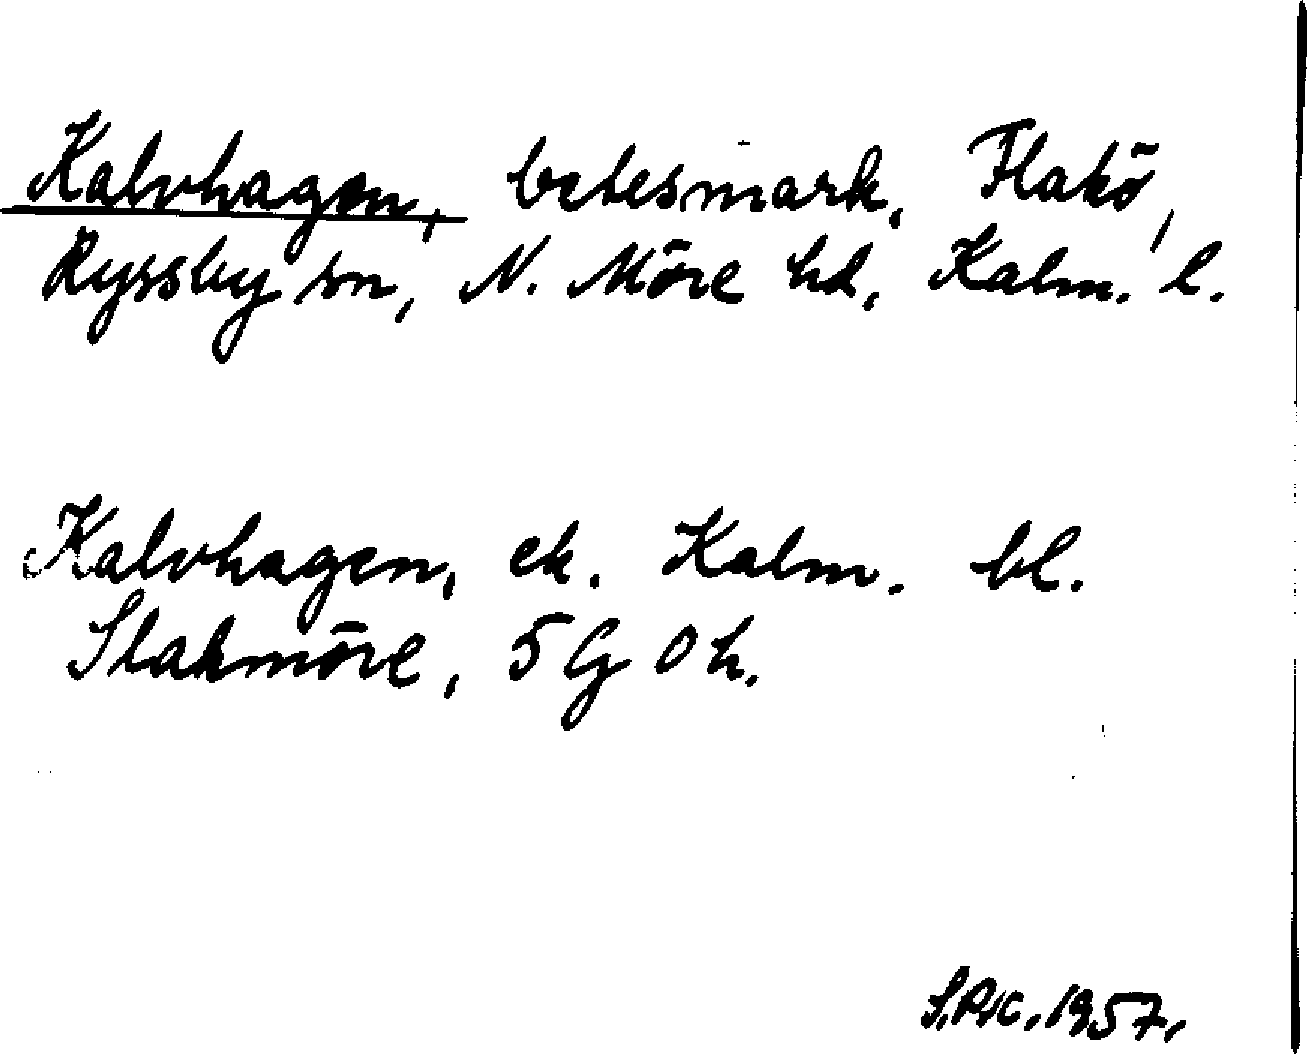 Kalvhagen, betesmark, Flakö,
Ryssby sn, N. Möre hd, Kalm. l.
Kalvhagen, ek. Kalm. bl.
Slakmöre, 5 G 0 h.
1957.